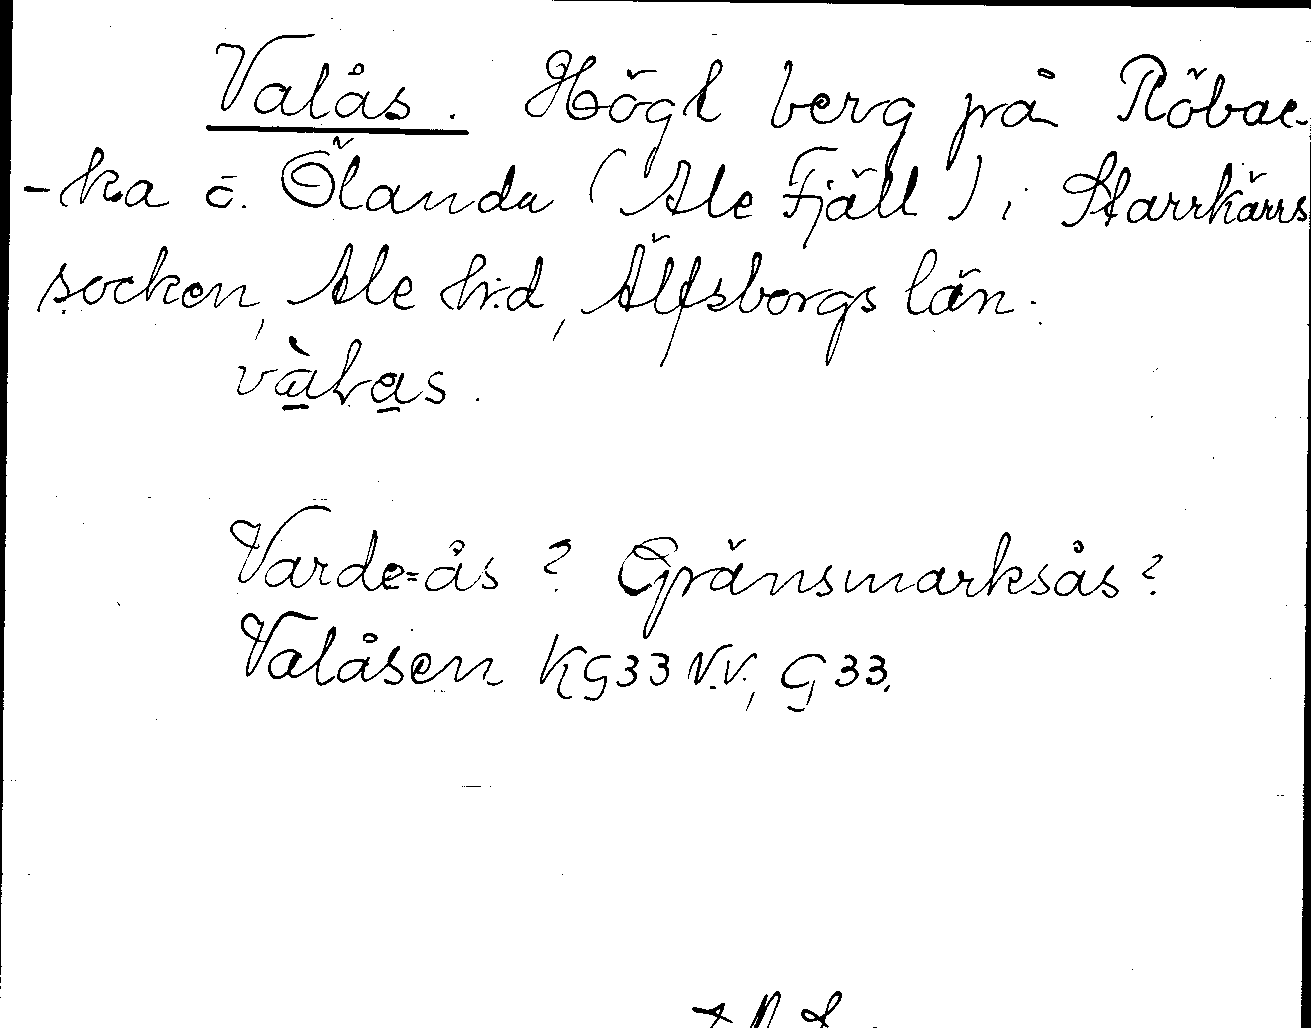 Valås. Högt berg på Röbac-
-ka o. Ölanda (Ale Fjäll) i Starrkärrs
socken, Ale h:d, Älfsborgs län.
Varde=ås? Gränsmarksås?
Valåsen KG33 N.V., G33.